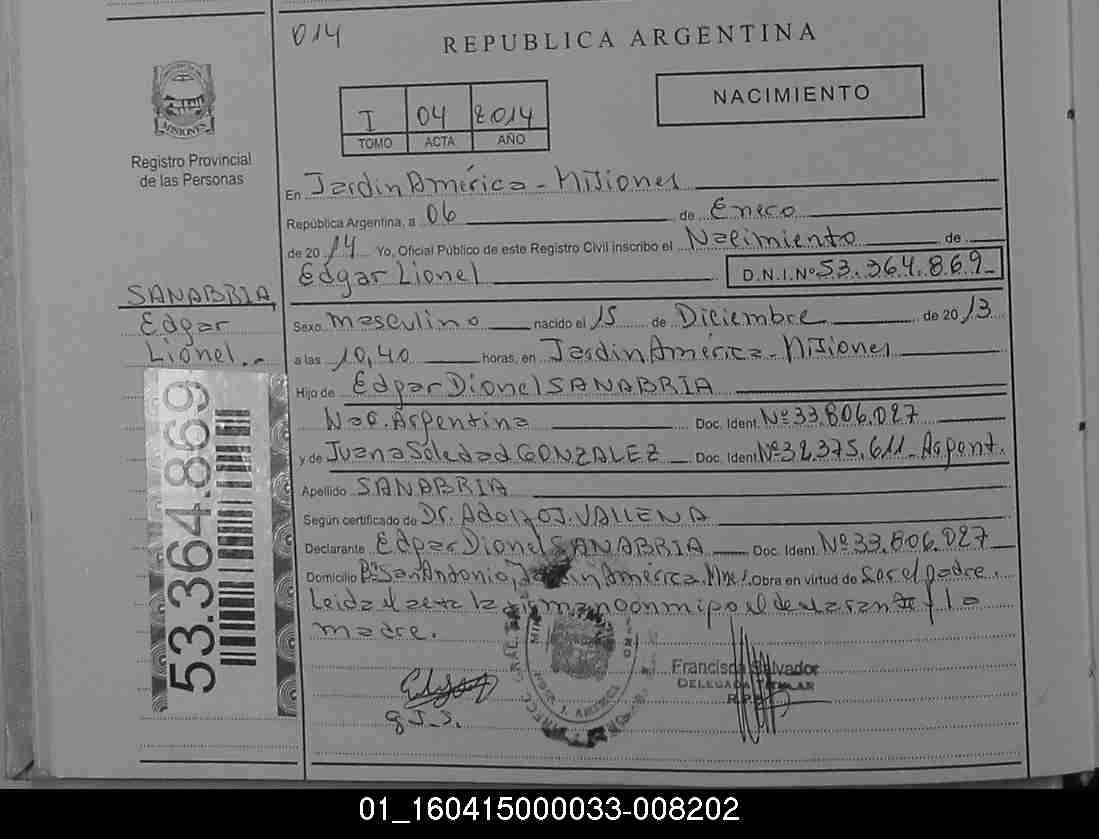 014
REPUBLICA ARGENTINA
NACIMIENTO
I 04 2014
TOMO ACTA AÑO
MISIONES
Registro Provincial
de las Personas
En Jardin América - Misiones
República Argentina, a 06 de Enero
de 2014 Yo, Oficial Público de este Registro Civil inscribo el Nacimiento de
Edgar Lionel D.N.I.Nº 53.364.869-
SANABRIA
Edgar
Lionel.-
Sexo masculino nacido el 15 de Diciembre de 2013
a las 10,40 horas, en Jardin América - Misiones
Hijo de Edgar Dionel SANABRIA
Nac. Argentina Doc. Ident. Nº 33.806.027
y de Juana Soledad GONZALEZ Doc. Ident. Nº 32.375.611- Argent.
Apellido SANABRIA
Según certificado de Dr. Adolfo J. VALLENA
Declarante Edgar Dionel SANABRIA Doc. Ident. Nº 33.806.027
Domicilio Bº San Antonio, Jardin América. Mnes. Obra en virtud de Ser el padre.
Leida el acta la firman conmigo el declarante y la
madre.
53.364.869
Francisca Salvador
DELEGADA TITULAR
R.P.P.
g J.S.
01_160415000033-008202